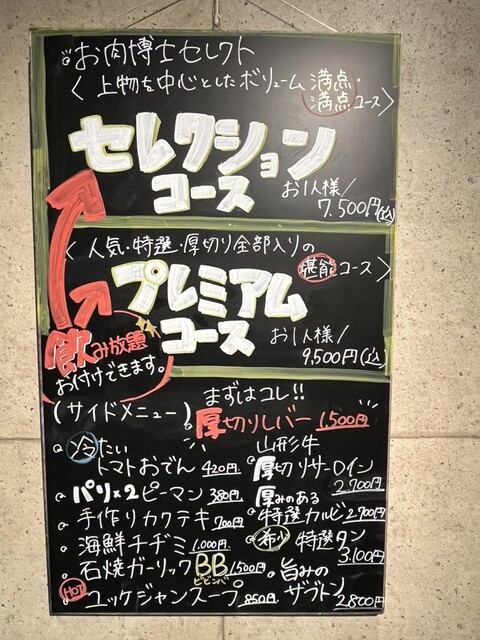 お肉博士セレクト
〈上物を中心としたボリューム満点・
満点コース〉
セレクション
コース
お1人様/
7,500円(込)
〈人気・特選・厚切り全部入りの
堪能コース〉
プレミアム
コース
お1人様/
9,500円(込)
飲み放題
お付けできます。
(サイドメニュー)
冷たい
トマトおでん 420円
パリ×2ピーマン 380円
手作りカクテキ 700円
海鮮チヂミ 1,000円
石焼ガーリックBB 1,500円
ビビンバ
HOT
ユッケジャンスープ 850円
まずはコレ!!
厚切りレバー 1,500円
山形牛
厚切りサーロイン
2,700円
厚みのある
特選カルビ 2,700円
希少 特選タン
3,100円
旨みの
ザブトン 2,800円